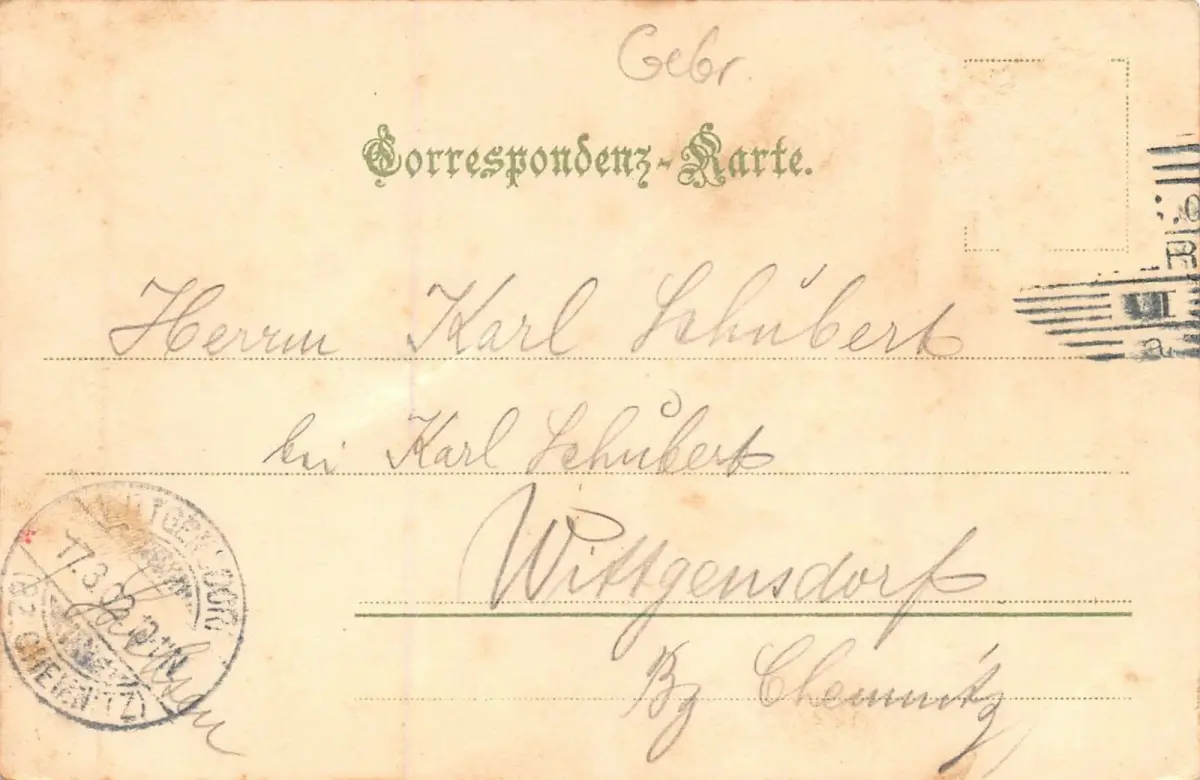 Gebr.
Correspondenz-Karte.
Herrn Karl Schubert
bei Karl Schubert
Wittgensdorf
Bz Chemnitz
17.3.02
(BZ. CHEMNITZ)